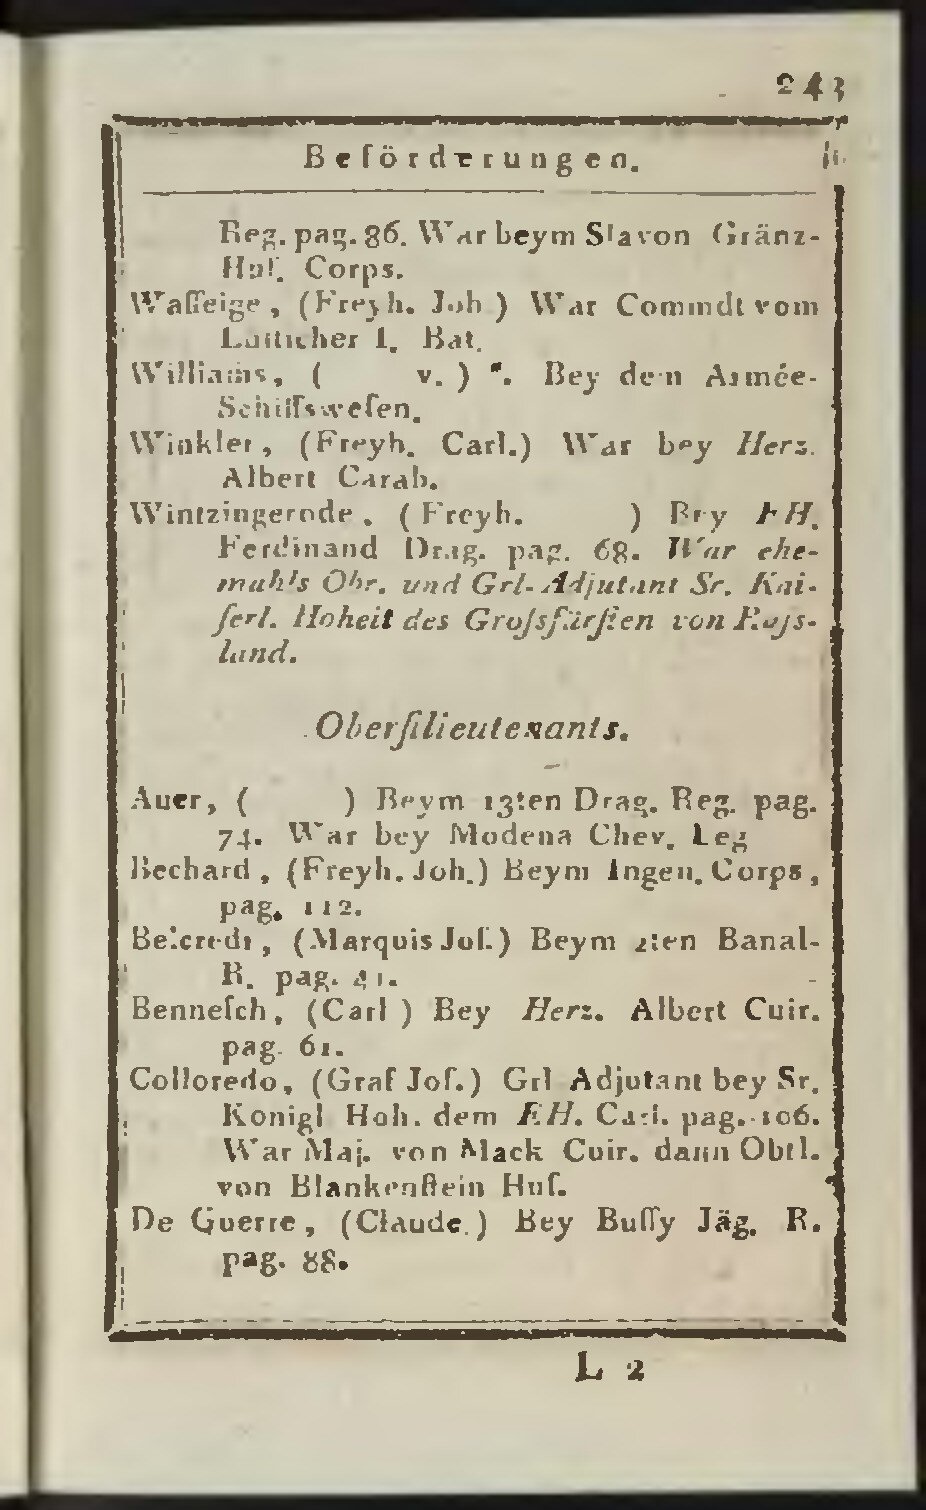 243
Beförderungen.
Reg. pag. 86. War beym Slavon Gränz-
Huſ. Corps.
Waſſeige, (Freyh. Joh.) War Commdt vom
Lütticher 1. Bat.
Williams, ( v. ) Bey dem Armée-
Schiffsweſen.
Winkler, (Freyh. Carl.) War bey Herz.
Albert Carab.
Wintzingerode. (Freyh. ) Bey EH.
Ferdinand Drag. pag. 68. War ehe-
mahls Obr. und Grl-Adjutant Sr. Kai-
ſerl. Hoheit des Groſsfürſten von Ruſs-
land.
Oberſtlieutenants.
Auer, ( ) Beym 13ten Drag. Reg. pag.
74. War bey Modena Chev. Leg
Bechard, (Freyh. Joh.) Beym Ingen. Corps,
pag. 112.
Belcredi, (Marquis Joſ.) Beym 2ten Banal-
R. pag. 41.
Benneſch, (Carl) Bey Herz. Albert Cuir.
pag. 61.
Colloredo, (Graf Joſ.) Grl Adjutant bey Sr.
Konigl Hoh. dem EH. Carl. pag. 106.
War Maj. von Mack Cuir. dann Obtl.
von Blankenſtein Huſ.
De Guerre, (Claude.) Bey Buſſy Jäg. R.
pag. 88.
L 2